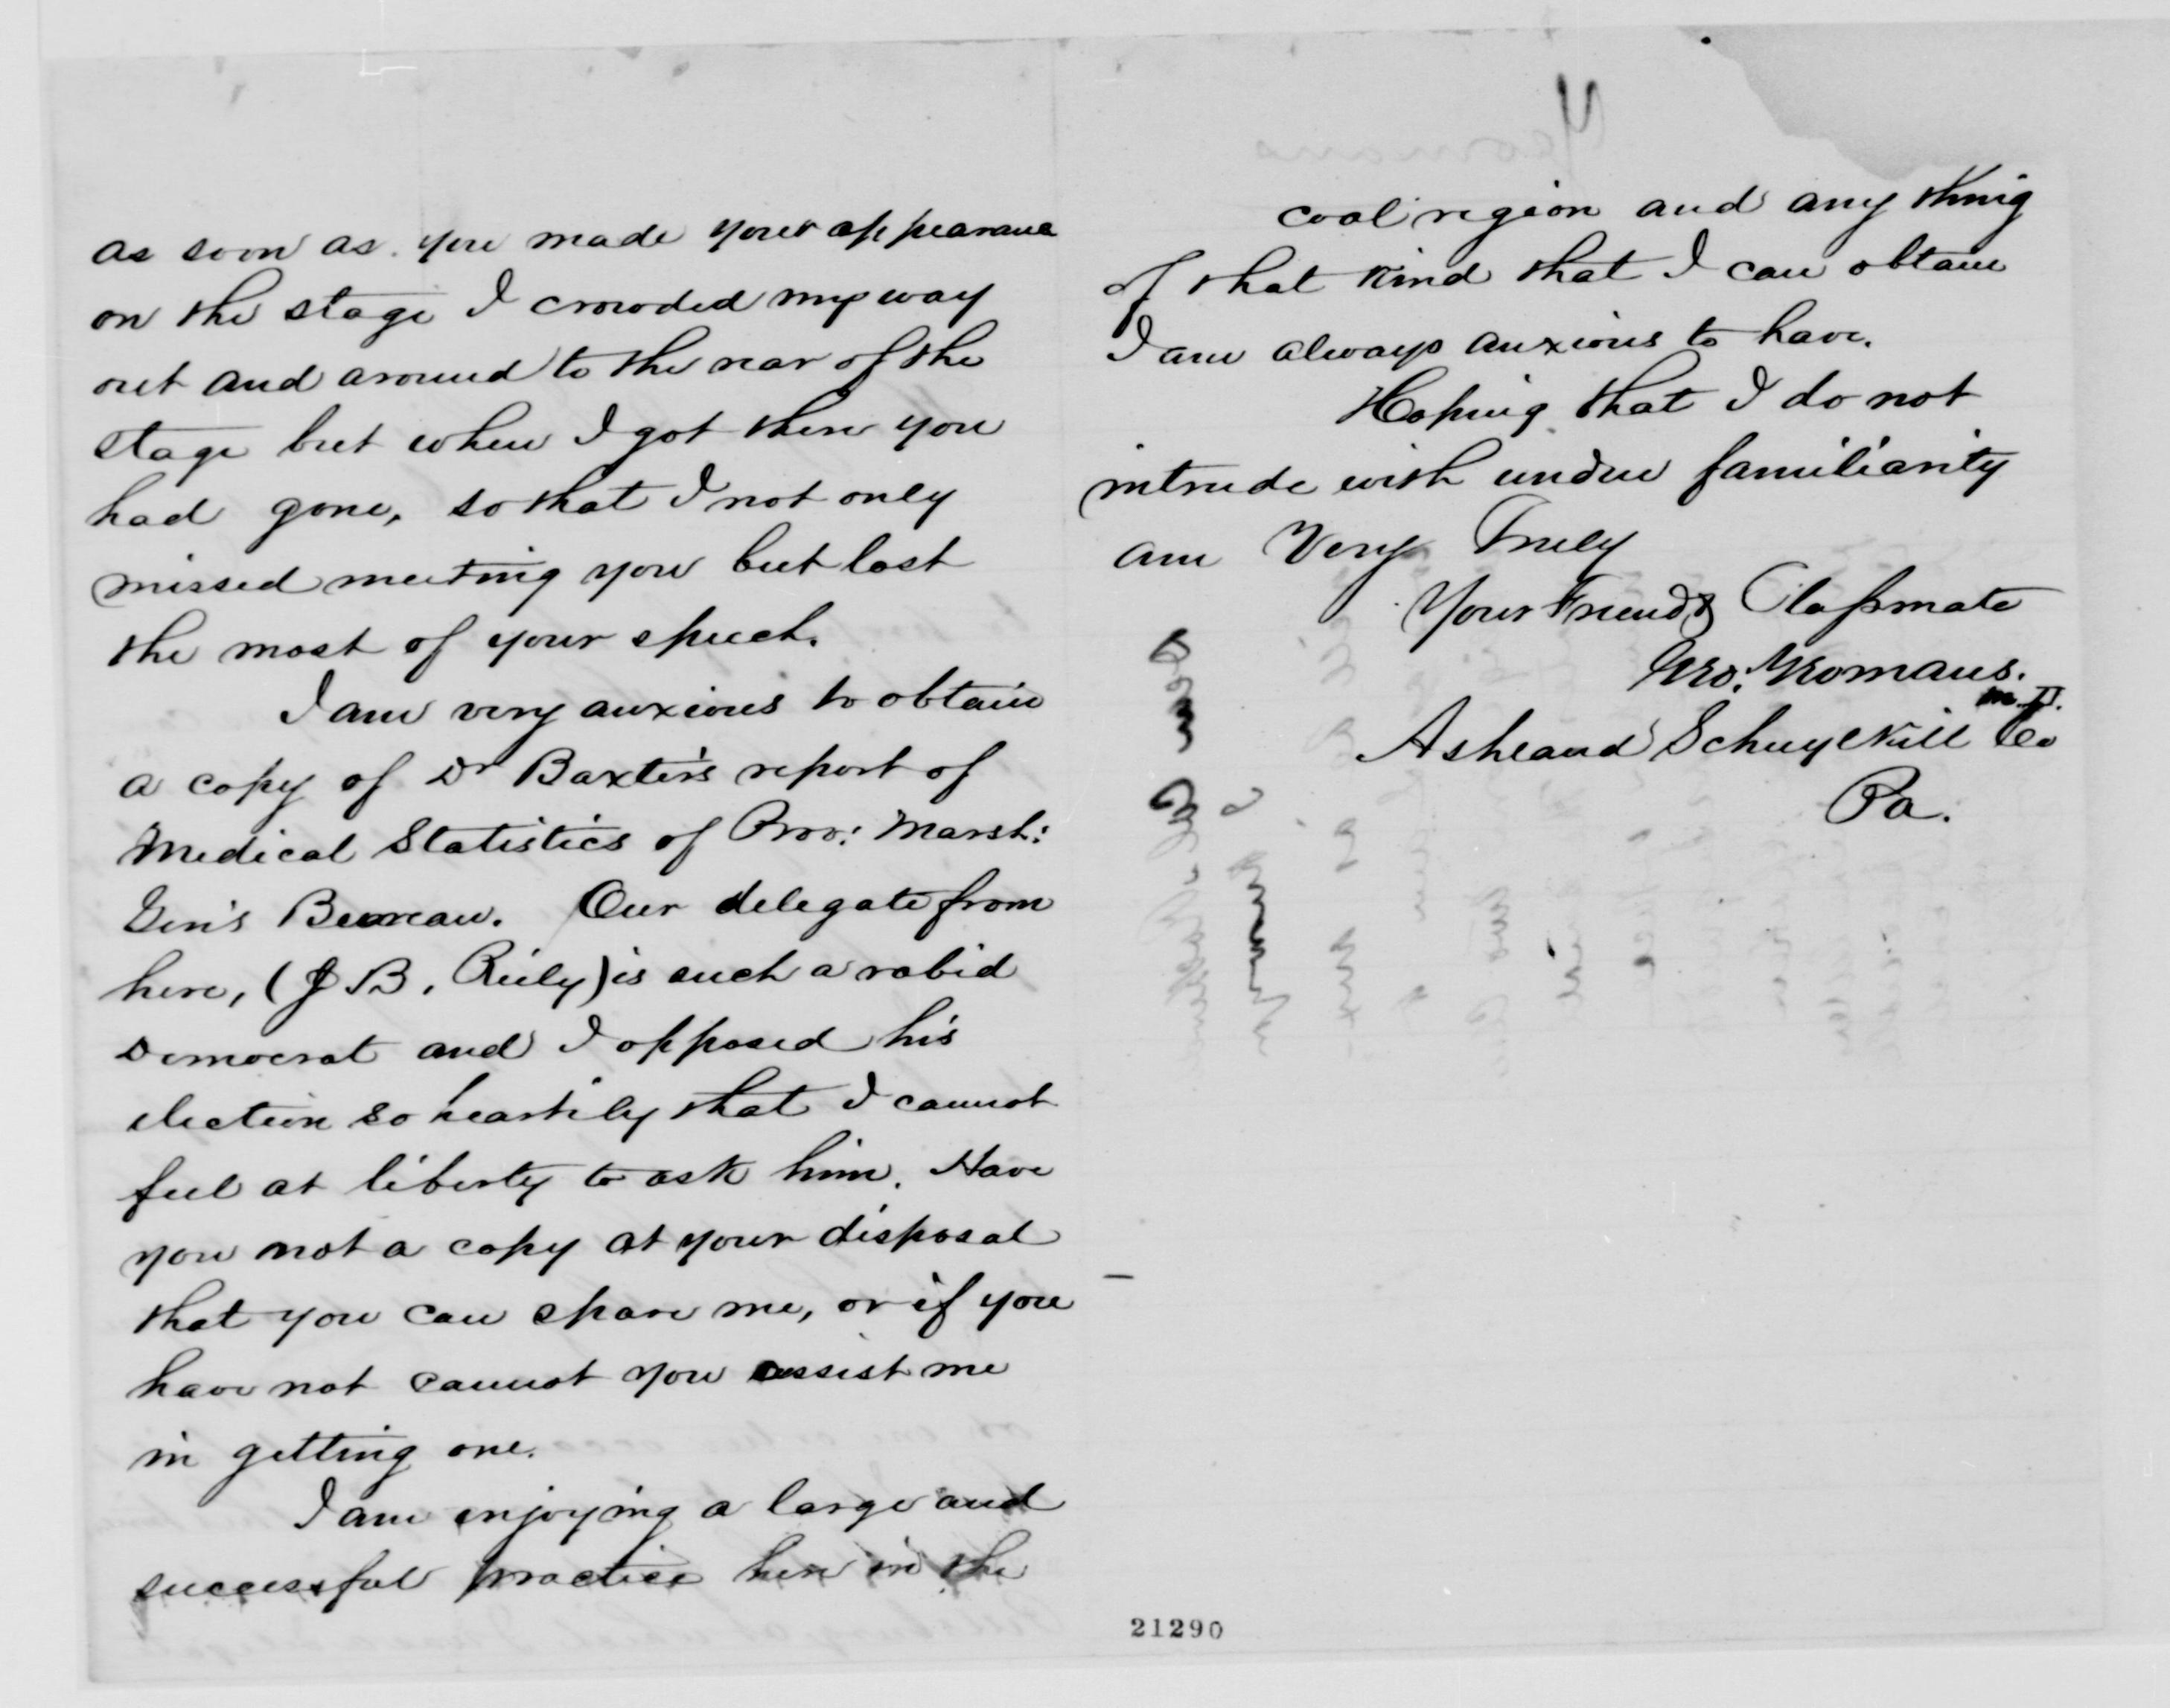 as soon as you made your appearance
on the stage I crowded my way
out and around to the rear of the
stage but when I got there you
had gone, so that I not only
missed meeting you but lost
the most of your speech.
I am very anxious to obtain
a copy of Dr Baxter's report of
Medical Statistics of Prov: Marsh:
Gen's Bureau. Our delegate from
here, (J B. Reily) is such a rabid
Democrat and I opposed his
election so heartily that I cannot
feel at liberty to ask him. Have
you not a copy at your disposal
that you can spare me, or if you
have not cannot you assist me
in getting one.
I am enjoying a large and
successful practice here in the
coal region and any thing
of that kind that I can obtain
I am always anxious to have.
Hoping that I do not
intrude with undue familiarity
am Very Truly
Your Friend & Claſsmate
Geo: Yeomans.
M.D.
Ashland Schuylkill Co
Pa.
21290